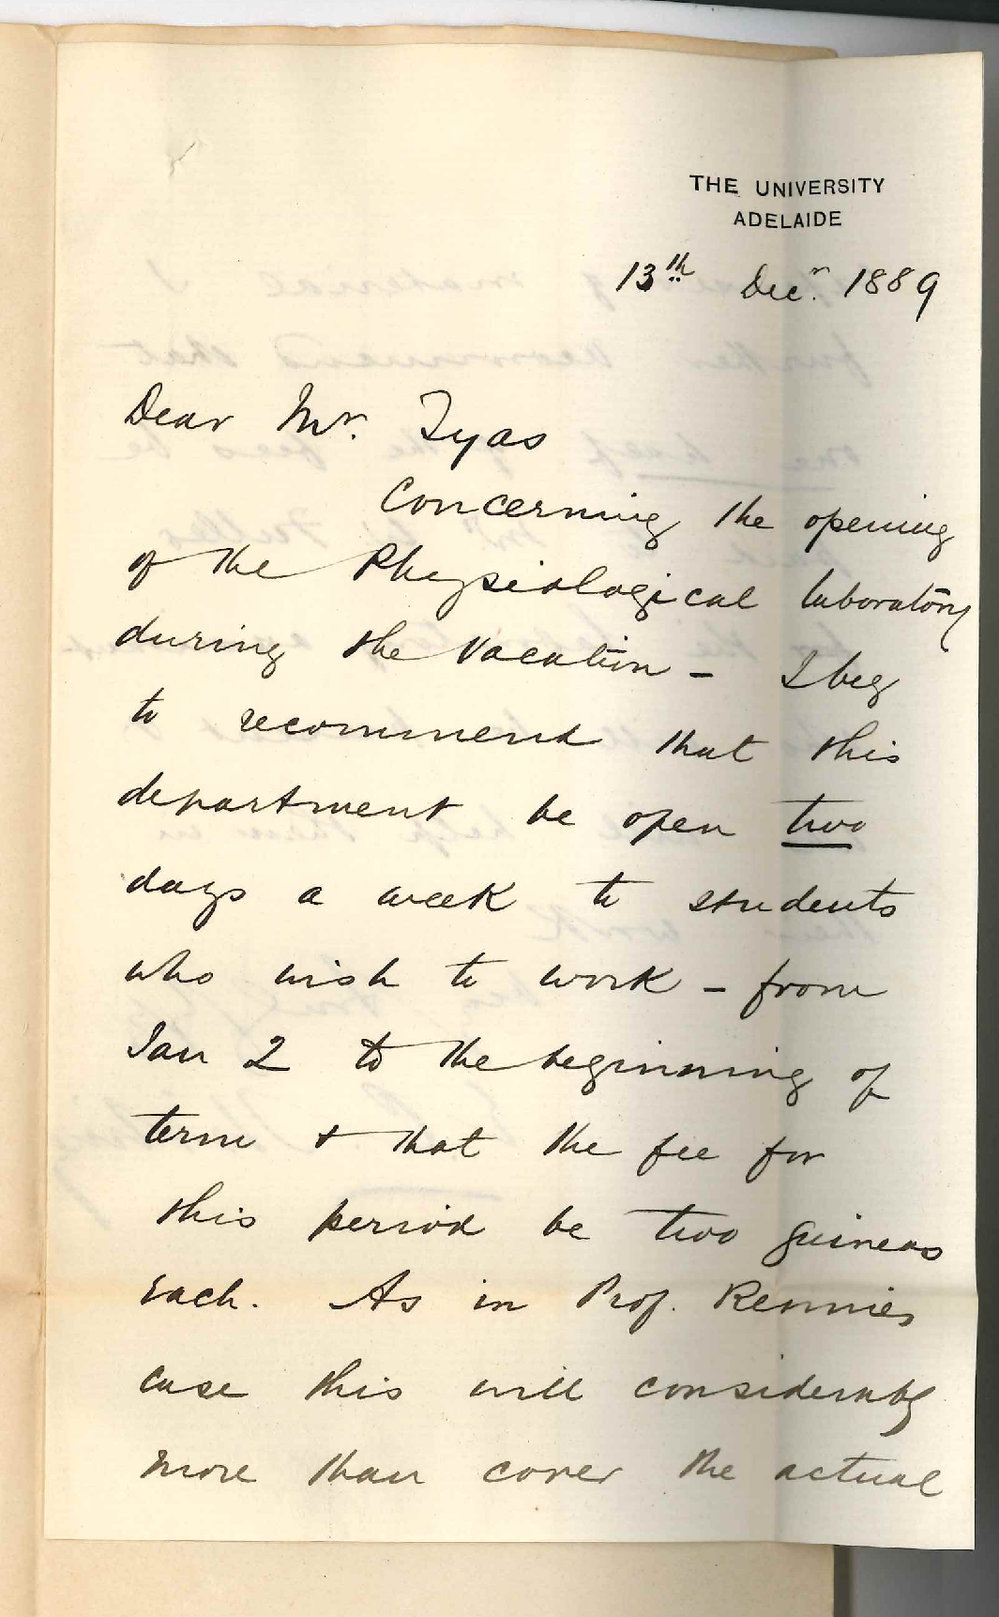 THE UNIVERSITY
ADELAIDE
13th Decr. 1889
Dear Mr. Tyas
Concerning the opening
of the Physiological laboratory
during the Vacation - I beg
to recommend that this
department be open two
days a week to students
who wish to work - from
Jan 2 to the beginning of
term & that the fee for
this period be two guineas
each. As in Prof. Rennies
case this will considerably
more than cover the actual